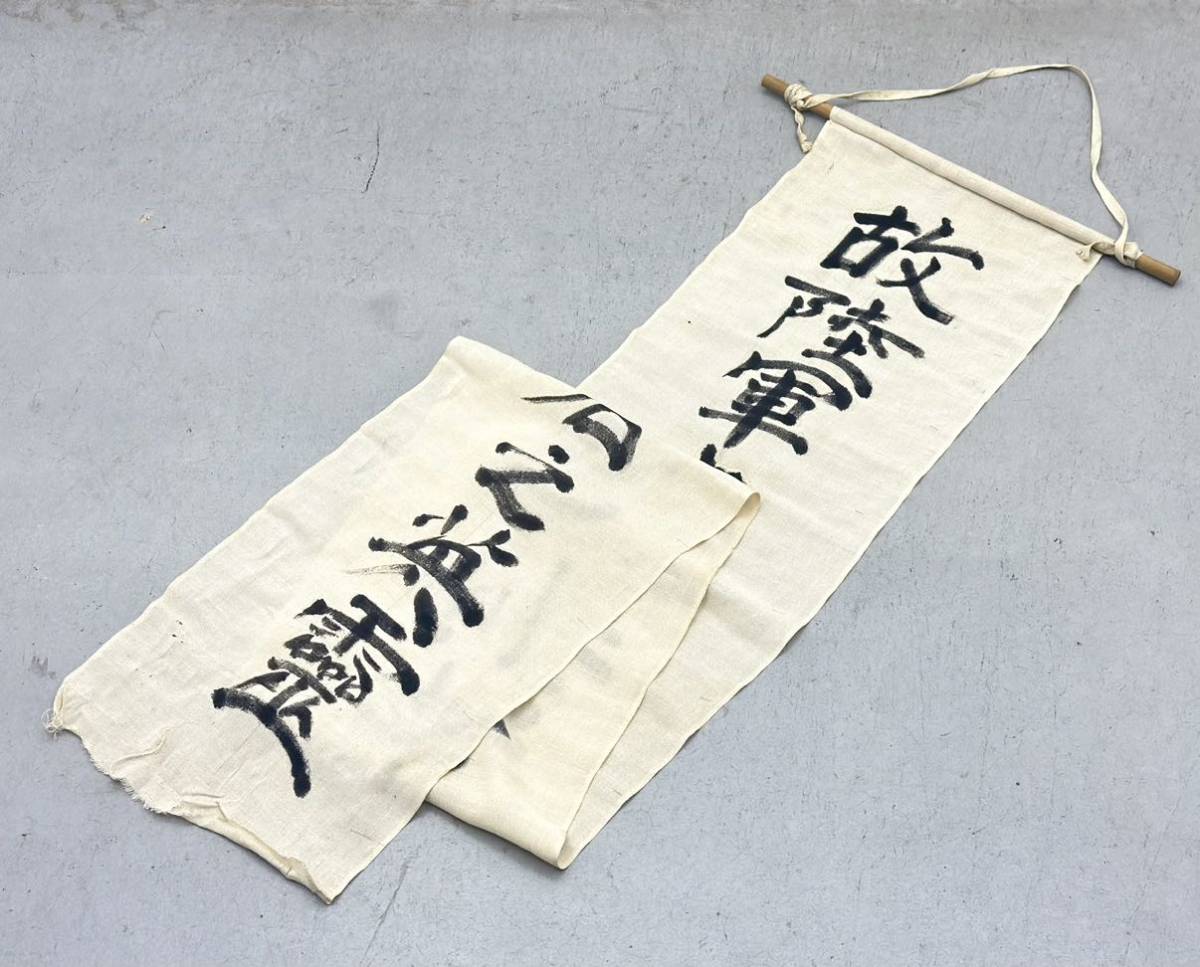 故陸軍
之英靈